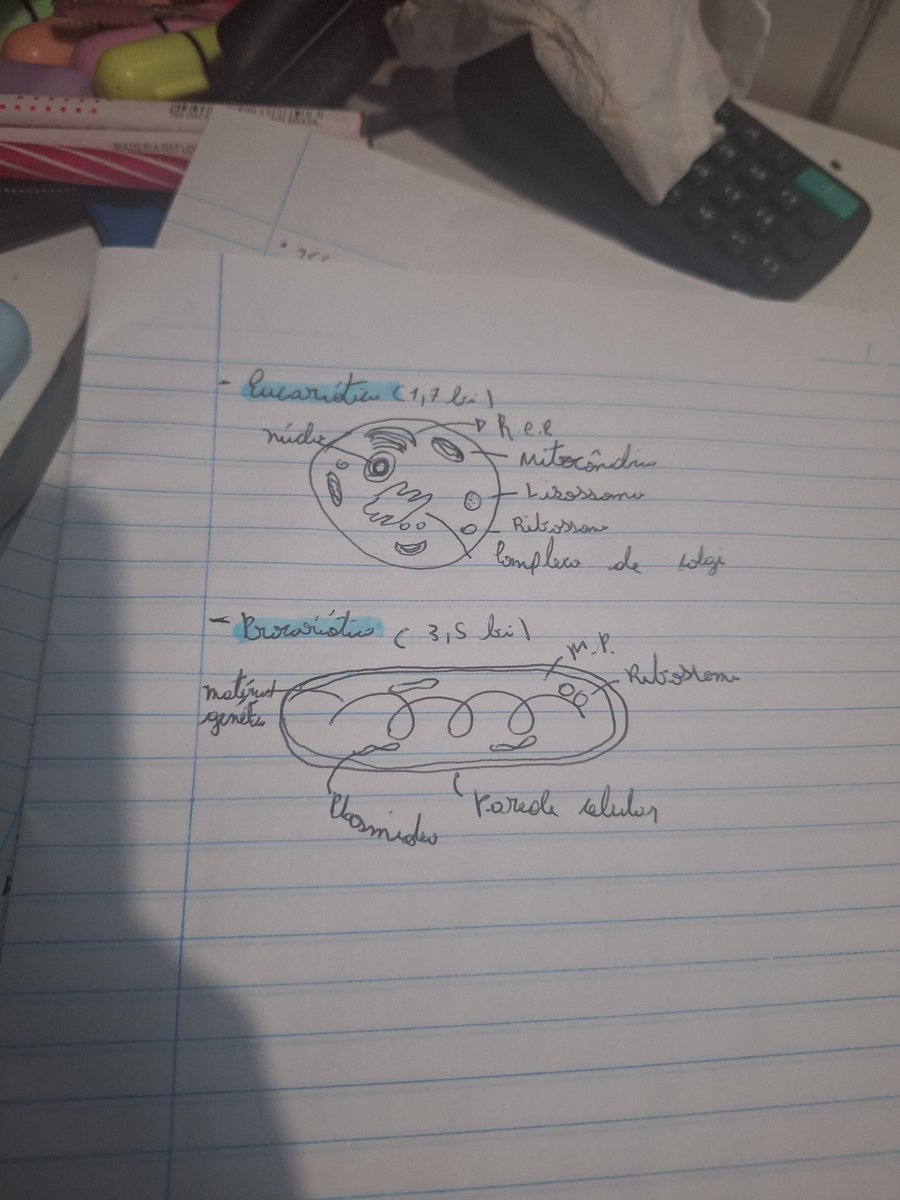 MADEIRA REFLO
- Eucariótico (1,7 bi)
núcleo
R.e.R
Mitocôndria
Lisossomo
Ribossomo
Complexo de Golgi
- Procariótico (3,5 bi)
M.P.
Ribossomo
material
genético
Plasmideo
Parede celular